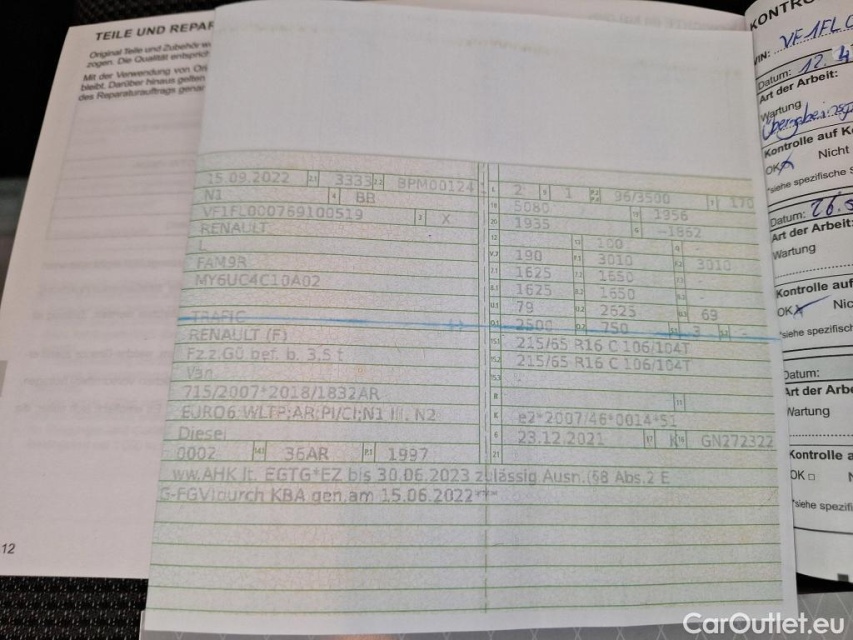 TEILE UND REPAR
Original Teile und Zubehör
zogen. Die Qualität entsprich
Mit der Verwendung von
bleibt. Darüber hinaus gelten
des Reparaturauftrags
15.09.2022 2.1 3333 2.2 BPM00124
N1 4 BB
VF1FL000769100519 3 X
RENAULT
L
FAM9R
MY6UC4C10A02
TRAFIC
RENAULT (F)
Fz.z.Gü.bef. b. 3,5 t
Van
715/2007*2018/1832AR
EURO6;WLTP;AR;PI/CI;N1 III, N2
Diesel
0002 14.1 36AR P.1 1997
ww.AHK lt. EGTG*EZ bis 30.06.2023 zulässig Ausn.(§8 Abs.2 E
G-FGV)durch KBA gen.am 15.06.2022***
2 1 96/3500 170
5080 1956
1935 -1862
100 -
190 3010 3010
1625 1650 -
1625 1650 -
79 2625 69
2500 750 3 -
215/65 R16 C 106/104T
215/65 R16 C 106/104T
-
e2*2007/46*0014*51
23.12.2021 K GN272322
12
KONTRO
VIN: VF1FL0
Datum: 12.
Art der Arbeit:
Wartung
Kontrolle auf K
OK Nicht
*siehe spezifische S
Datum: 26.
Art der Arbeit:
Wartung
Kontrolle auf
OK Nic
*siehe spezifisch
Datum:
Art der Arbe
Wartung
Kontrolle a
OK □ N
*siehe spezifi
CarOutlet.eu